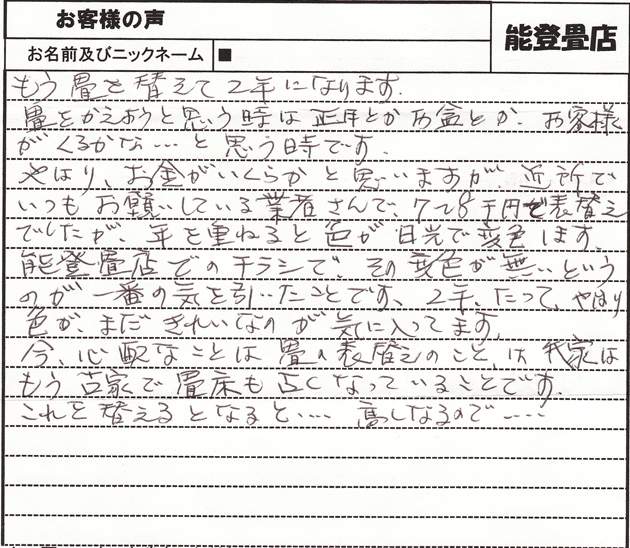 お客様の声
能登畳店
お名前及びニックネーム ■
もう畳を替えて2年になります.
畳をかえようと思う時は正月とかお盆とか、お客様
がくるかな…と思う時です.
やはり、お金がいくらかと思いますが、近所で
いつもお願いしている業者さんで、7〜8千円で表替え
でしたが、年を重ねると色が日光で変色します。
能登畳店でのチラシで、その変色が無いという
のが一番の気を引いたことです、2年、たって、やはり
色が、まだきれいなのが気に入ってます,
今、心配なことは畳の表替えのこと、我家は
もう古家で畳床も古くなっていることです.
これを替えるとなると‥‥高しなるので‥‥